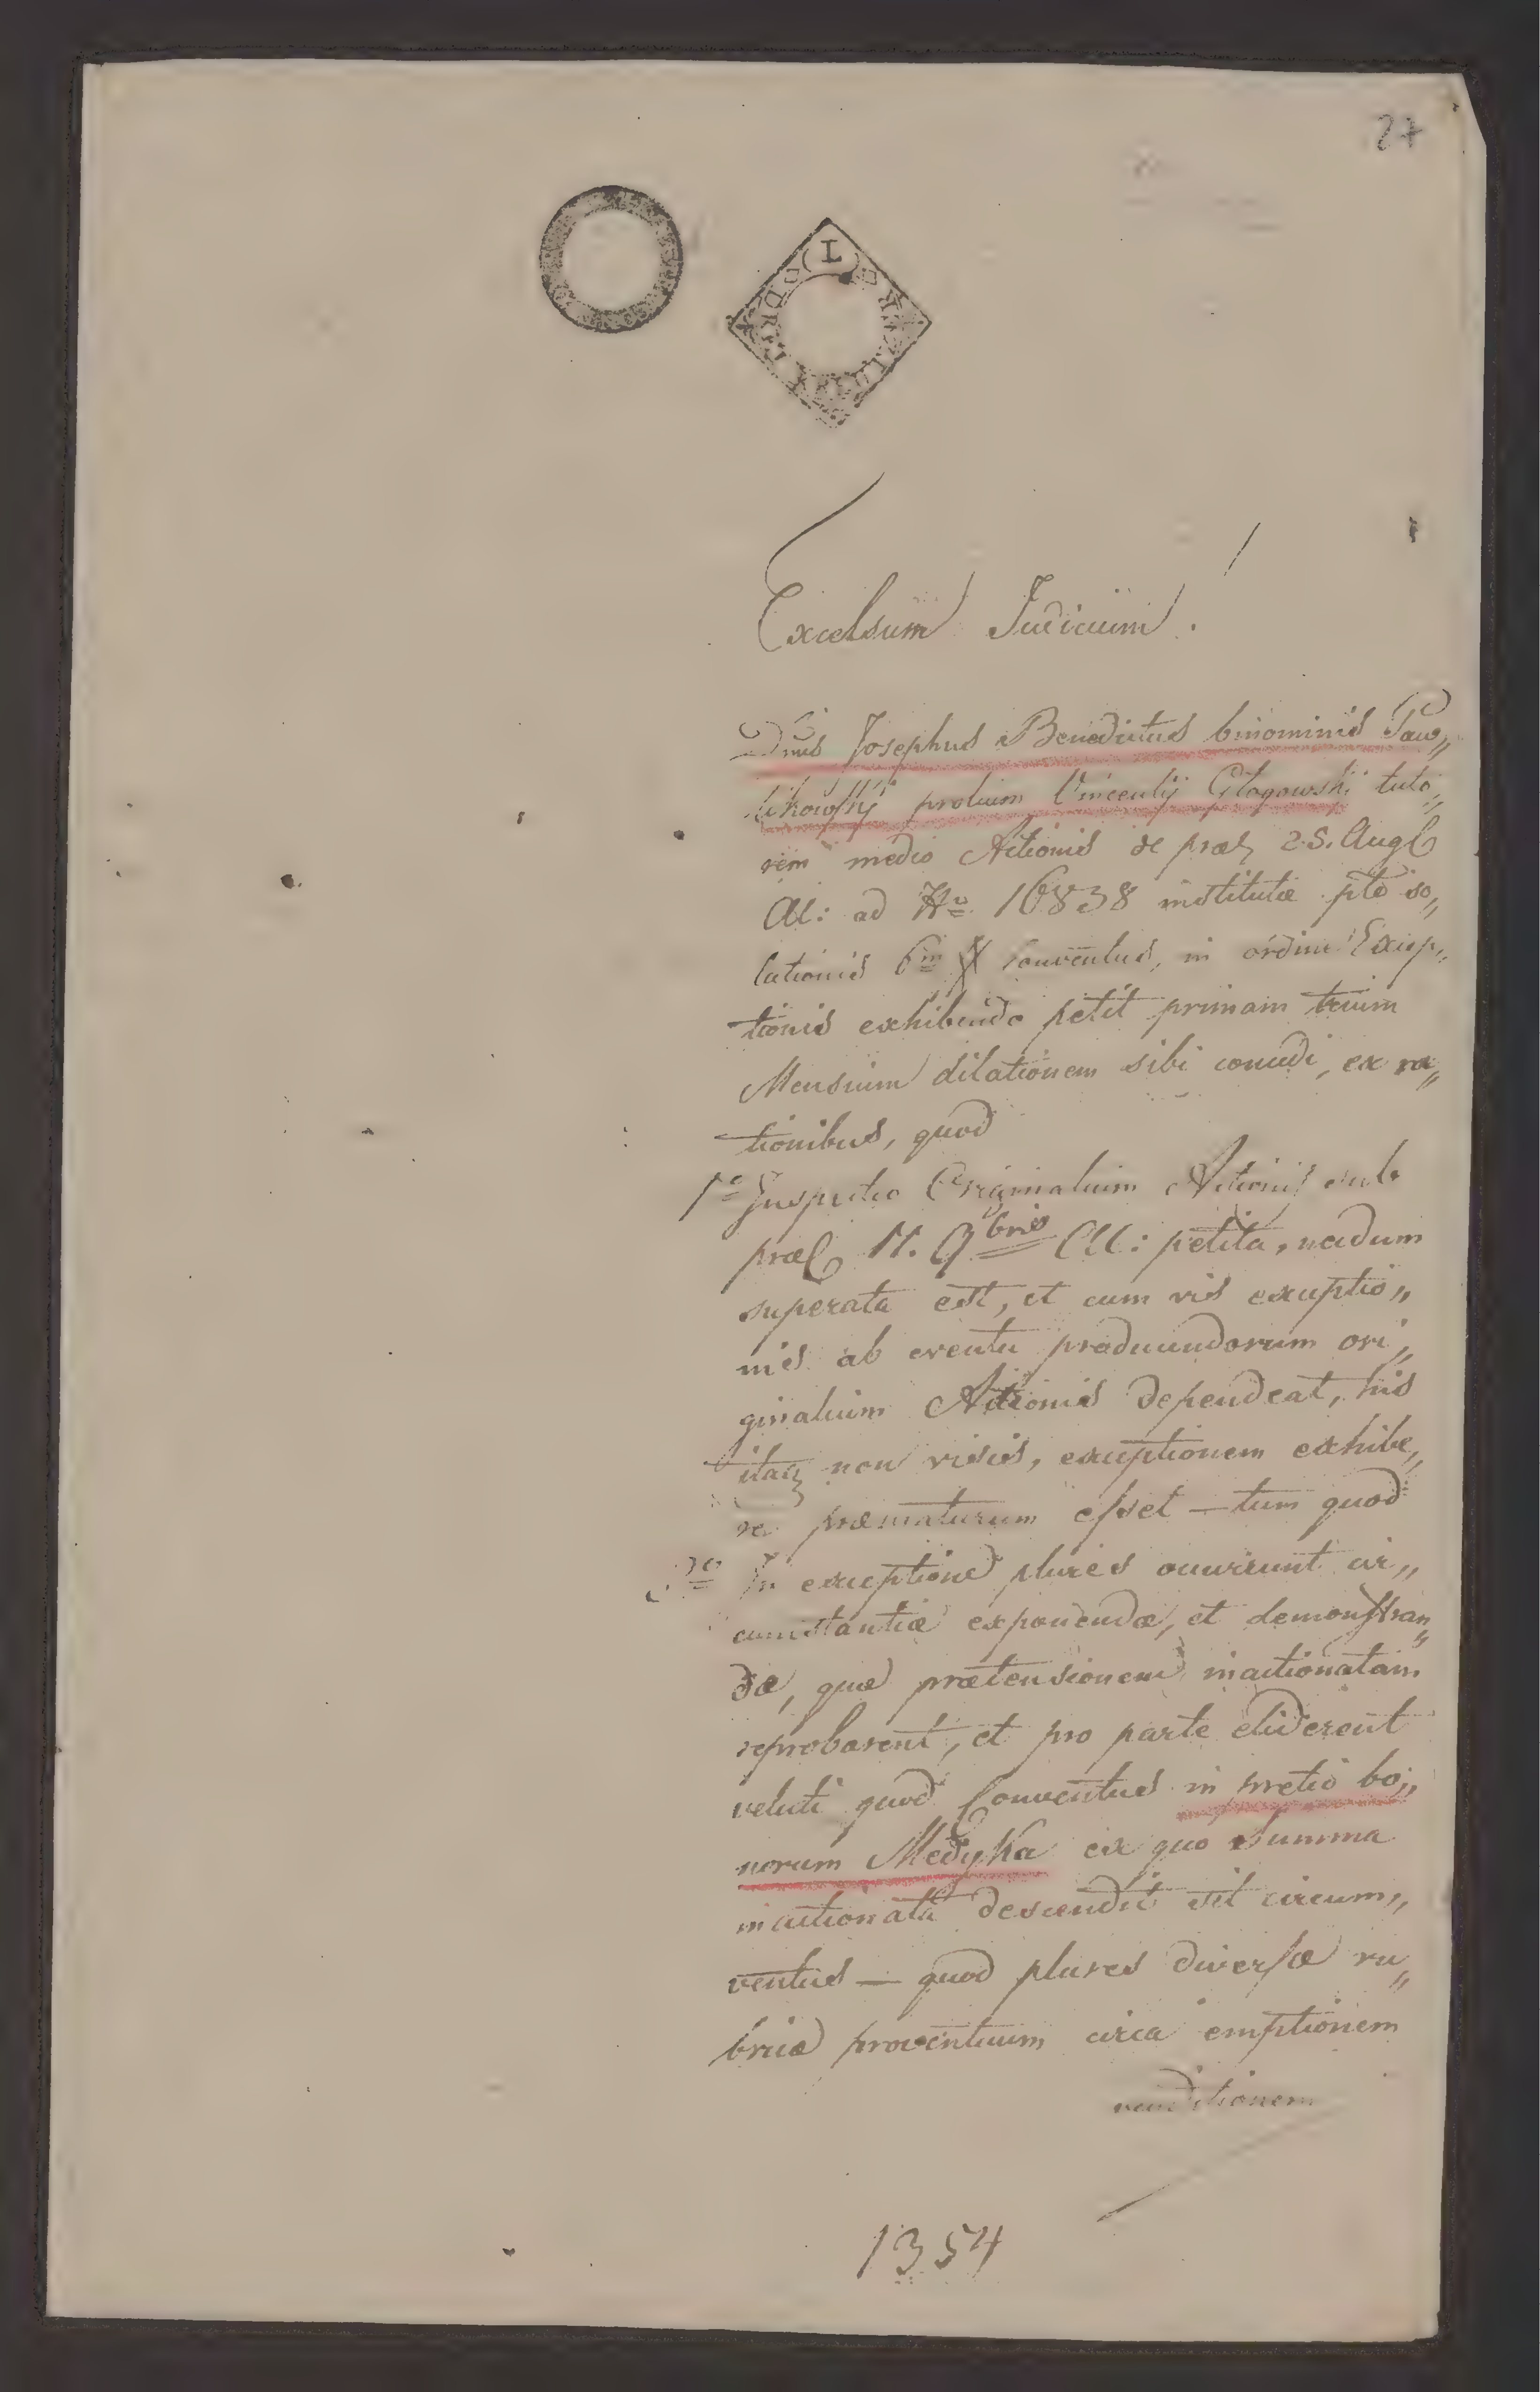 27
Excelsum Judicium!
Dnus Josephus Benedictus binominis Paw„
likowskÿ prolium Vincentÿ Glogowski tuto„
rem medio Actionis de praes 25. Aug
al: ad Nro 16838 institutae pto so„
lutionis Conventus, in ordine Excep„
tionis exhibendo petit primam trium
Mensium dilationem sibi concedi, ex ra„
tionibus, quod
1o Inspectio Originalium Actionis sub
praes 11. 9bris al: petita, necdum
superata est, et cum vis exceptio„
nis ab eventu producendorum ori„
ginalium Actionis dependeat, his
itaq non visis, exceptionem exhibe„
re praematurum esset — tum quod
2do In exceptione plures occurrunt cir„
cumstantiae exponendae, et demonstran„
dae, quae praetensionem inactionatam
reprobarent, et pro parte eliderent
veluti quod Conventus in pretio bo„
norum Medyka ex quo Summa
inactionata descendit sit circum„
ventus — quod plures diversae ru„
bricae proventuum circa emptionem
venditionem
1354